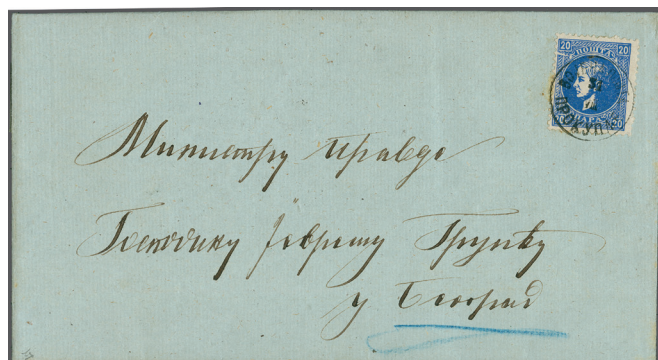 20 ПОШТА 20
ПАРА 20
ПРОКУП
Министру Правде
Господину Јеврему Грујићу
у Београд